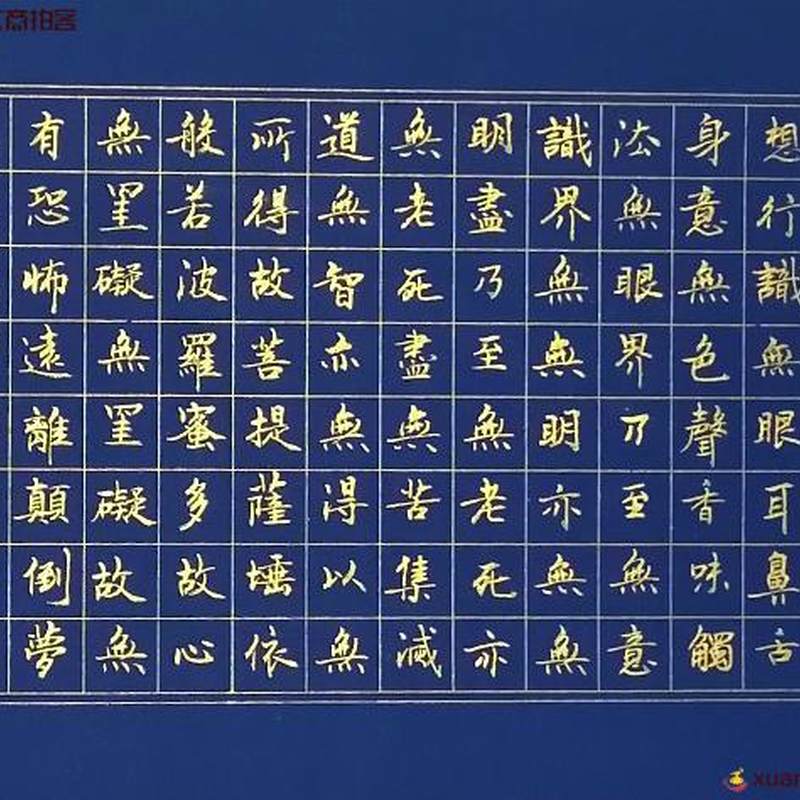 想行識無眼耳鼻舌
身意無色聲香味觸
法無眼界乃至無意
識界無無明亦無無
明盡乃至無老死亦
無老死盡無苦集滅
道無智亦無得以無
所得故菩提薩埵依
般若波羅蜜多故心
無罣礙無罣礙故無
有恐怖遠離顛倒夢
商拍客
xuan